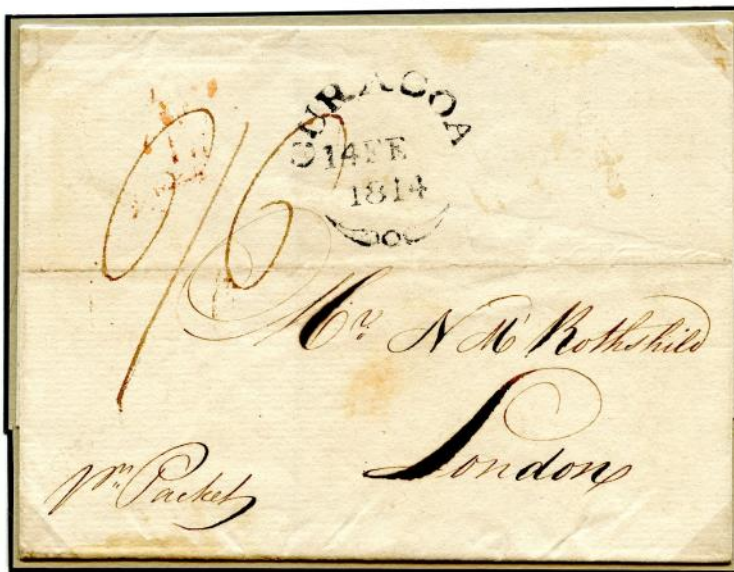 CURACOA
14 FE
1814
Mr. N M Rothshild
London
pr. Packet